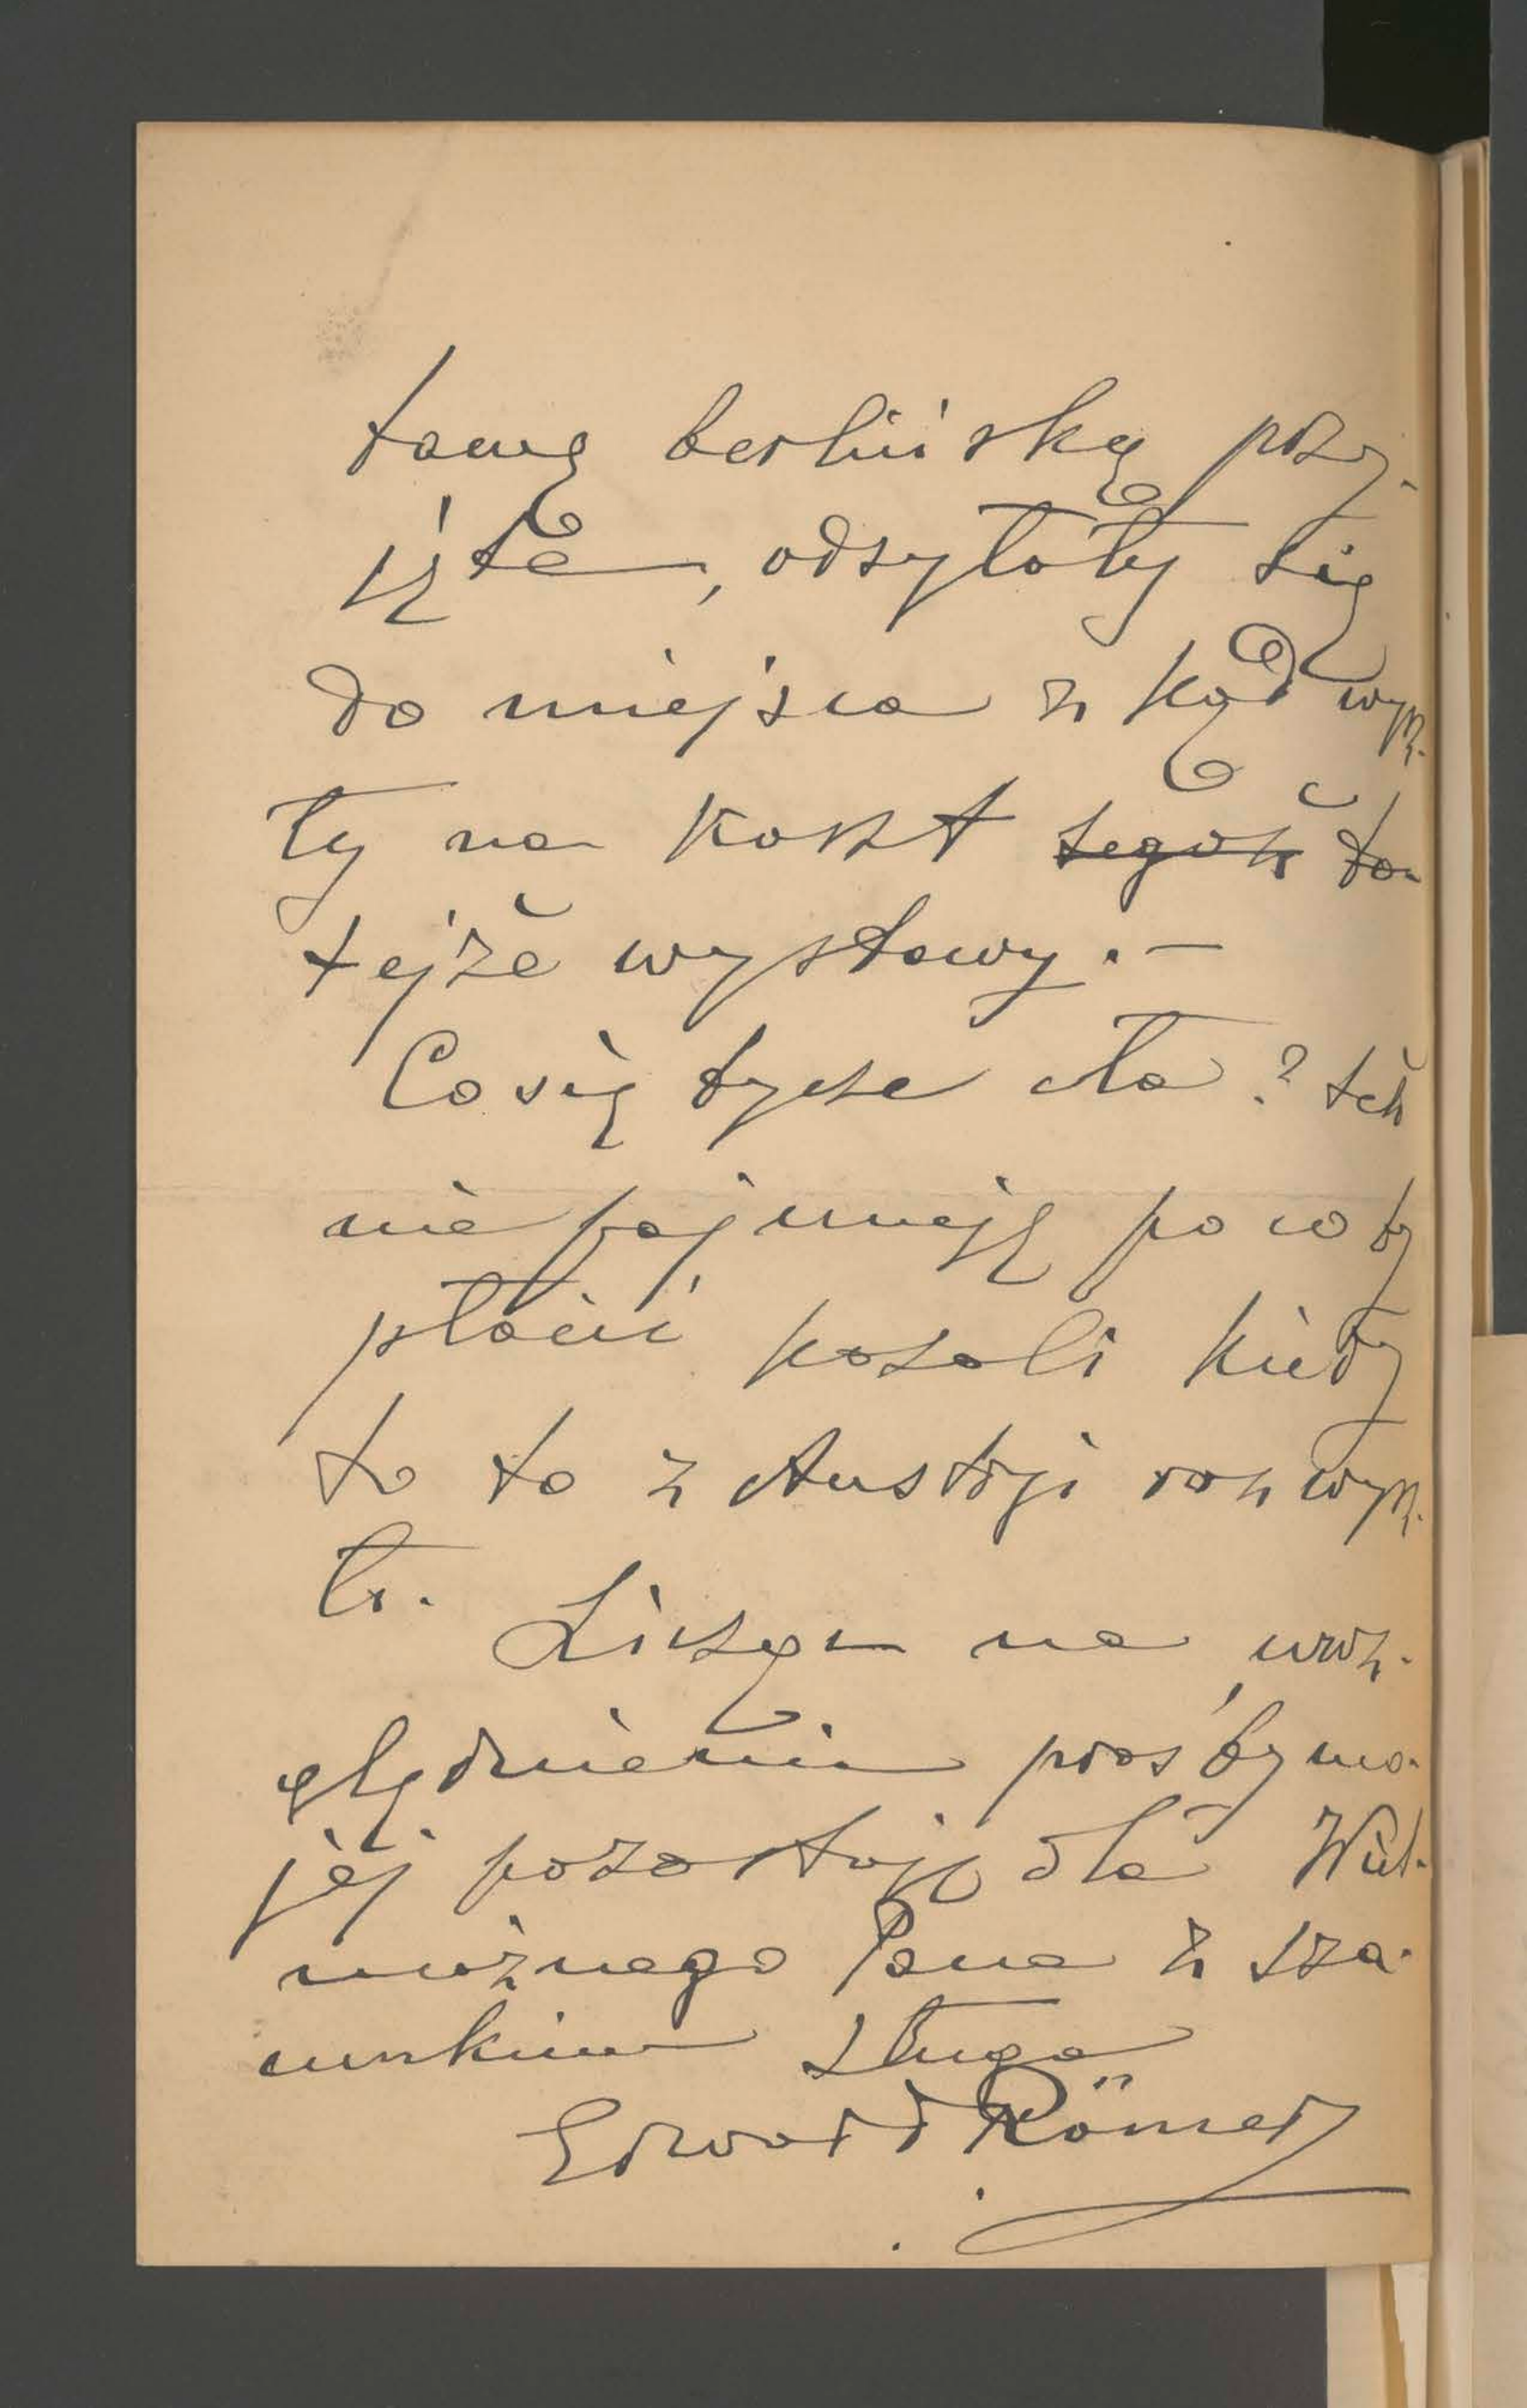 tawę berlińską przy-
jęte, odsyłały się
do miejsca z kąd wysz-
ły na koszt tegoż ta-
tejże wystawy. —
Co się tycze cła? też
nie pojmuję po co by
płacić kazali kiedy
to to z Austrji raz wysz-
ło.
Liczę na uwz-
ględnienie prośby mo-
jej pozostaję dla Wiel-
możnego Pana z sza-
cunkiem sługa
Edward Römer